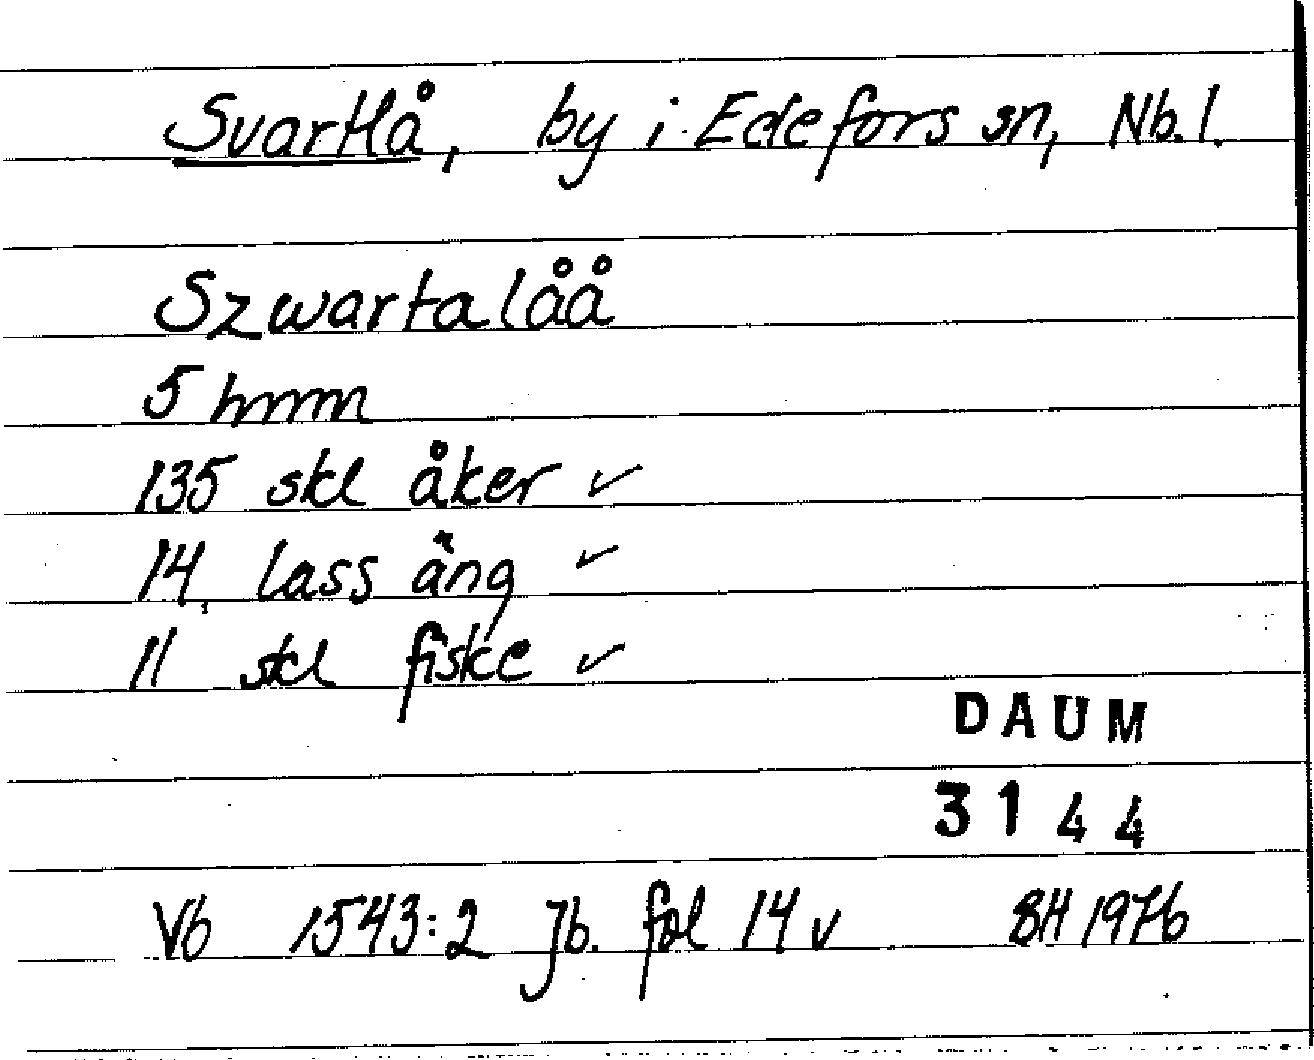 Svartlå, by i Edefors sn, Nb. l.
Szwartalåå
5 hmm
135 skl åker ✓
14 lass äng ✓
11 skl fiske ✓
DAUM
3144
Vb 1543:2 Jb. fol 14 v BH 1976